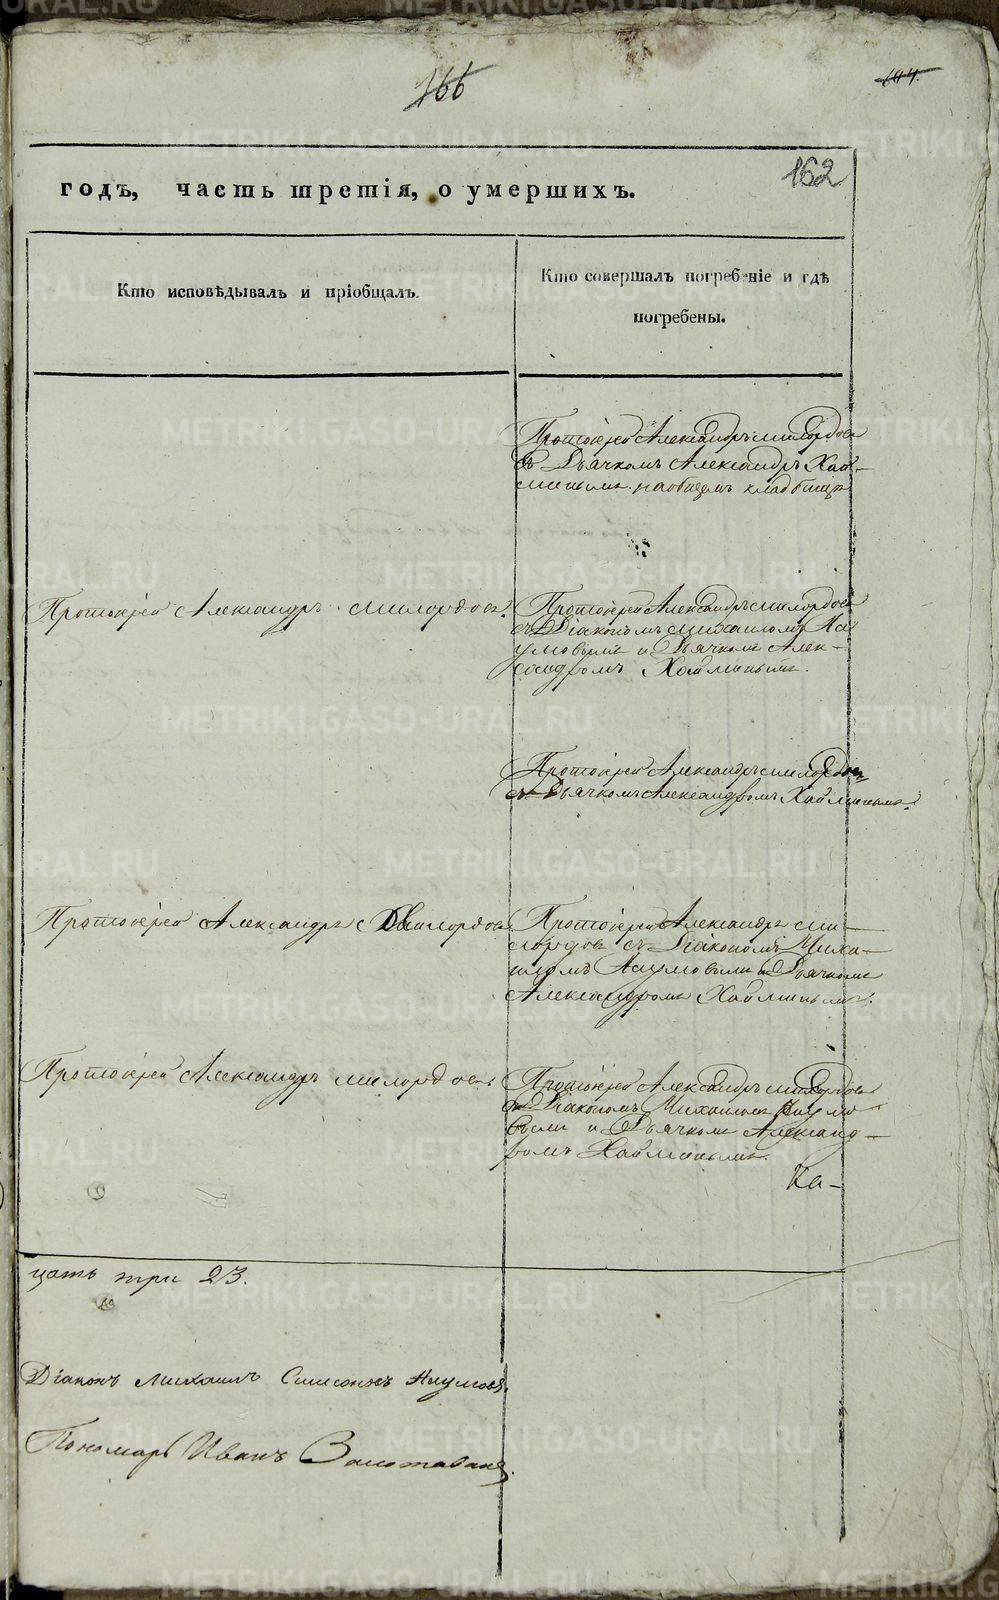 166
194.
162
годъ, часть третія, о умершихъ.
Кто исповѣдывалъ и пріобщалъ.
Кто совершалъ погребеніе и гдѣ
погребены.
Протоіерей Александръ Милордовъ
съ Дьячкомъ Александръ Хай-
миным на общемъ кладбище
Протоіерей Александръ Милордовъ.
Протоіерей Александръ Милордовъ
съ Діакономъ Михаиломъ На
умовымъ и Дьячкомъ Алек-
сандромъ Хайминымъ.
Протоіерей Александръ Милордовъ
съ Дьячкомъ Александромъ Хайминымъ.
Протоіерей Александръ Милордовъ
Протоіерей Александръ Ми-
лордовъ съ Діакономъ Миха-
иломъ Наумовымъ и Дьячкомъ
Александромъ Хайминымъ.
Протоіерей Александръ Милордовъ
Протоіерей Александръ Милордовъ
съ Діакономъ Михаиломъ Наумо
вымъ и Дьячкомъ Александ-
ромъ Хайминымъ.
Ка-
цать три 23.
Діаконъ Михаилъ Симсонъ Наумовъ.
Пономарь Иванъ
METRIKI.GASO-URAL.RU